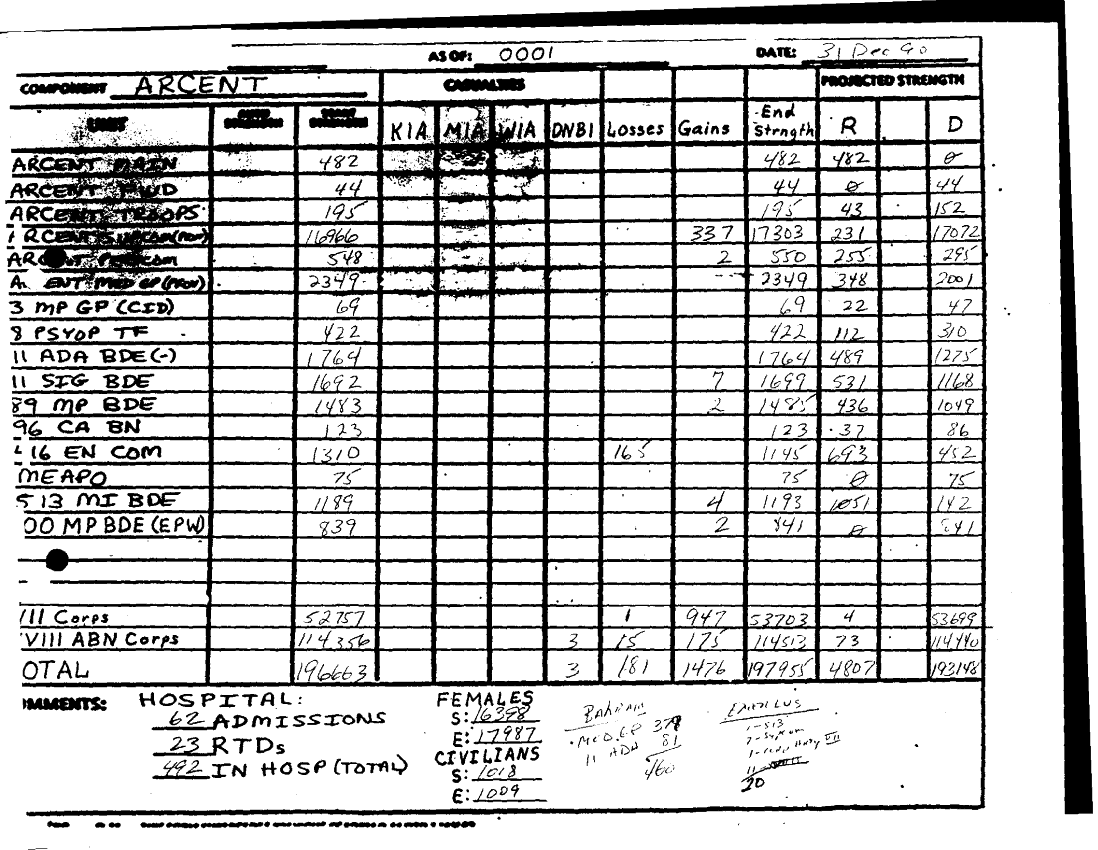 AS OF: 0001 DATE: 31 Dec 90
COMPONENT ARCENT CASUALTIES PROJECTED STRENGTH
UNIT STRENGTH STRENGTH KIA MIA WIA DNBI Losses Gains End Strngth R D
ARCENT MAIN 482 482 482 0
ARCENT FWD 44 44 0 44
ARCENT TROOPS 195 195 43 152
RCENT SUPCOM (PROV) 16966 337 17303 231 17072
AR NT PERSCOM 548 2 550 255 295
A ENT MED GP (PROV) 2349 2349 348 2001
3 MP GP (CID) 69 69 22 47
8 PSYOP TF 422 422 112 310
11 ADA BDE (-) 1764 1764 489 1275
11 SIG BDE 1692 7 1699 531 1168
89 MP BDE 1483 2 1485 436 1049
96 CA BN 123 123 37 86
16 EN COM 1310 165 1145 693 452
MEAPO 75 75 0 75
513 MI BDE 1189 4 1193 1051 142
00 MP BDE (EPW) 839 2 841 0 841
VII Corps 52757 1 947 53703 4 53699
VIII ABN Corps 114356 3 15 175 114513 73 114440
OTAL 196663 3 181 1476 197955 4807 193148
MMENTS: HOSPITAL:
62 ADMISSIONS
23 RTDs
492 IN HOSP (TOTAL)
FEMALES
S: 16398
E: 17987
CIVILIANS
S: 1018
E: 1009
BAHRAIN
MED GP 379
11 ADA 81
460
1-513
20